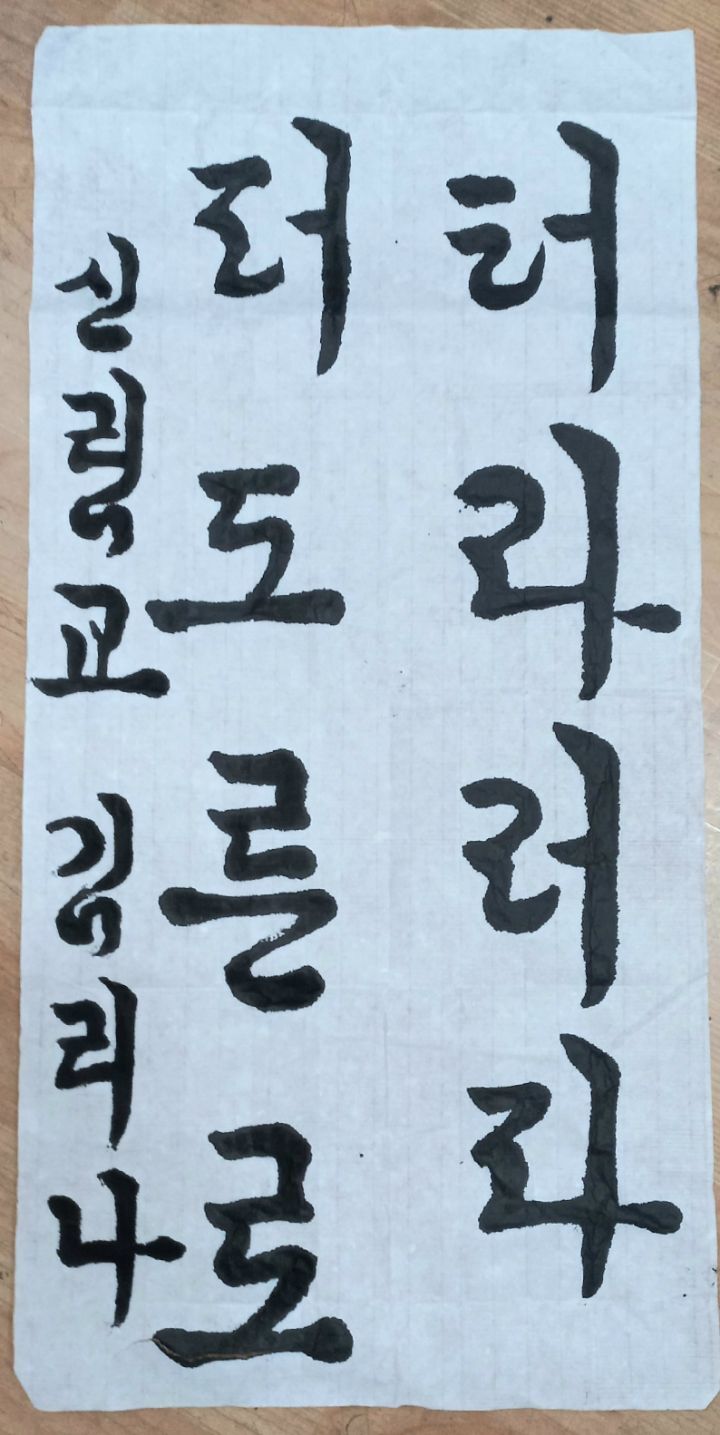 터라러라
러도를로
신림교 김리나